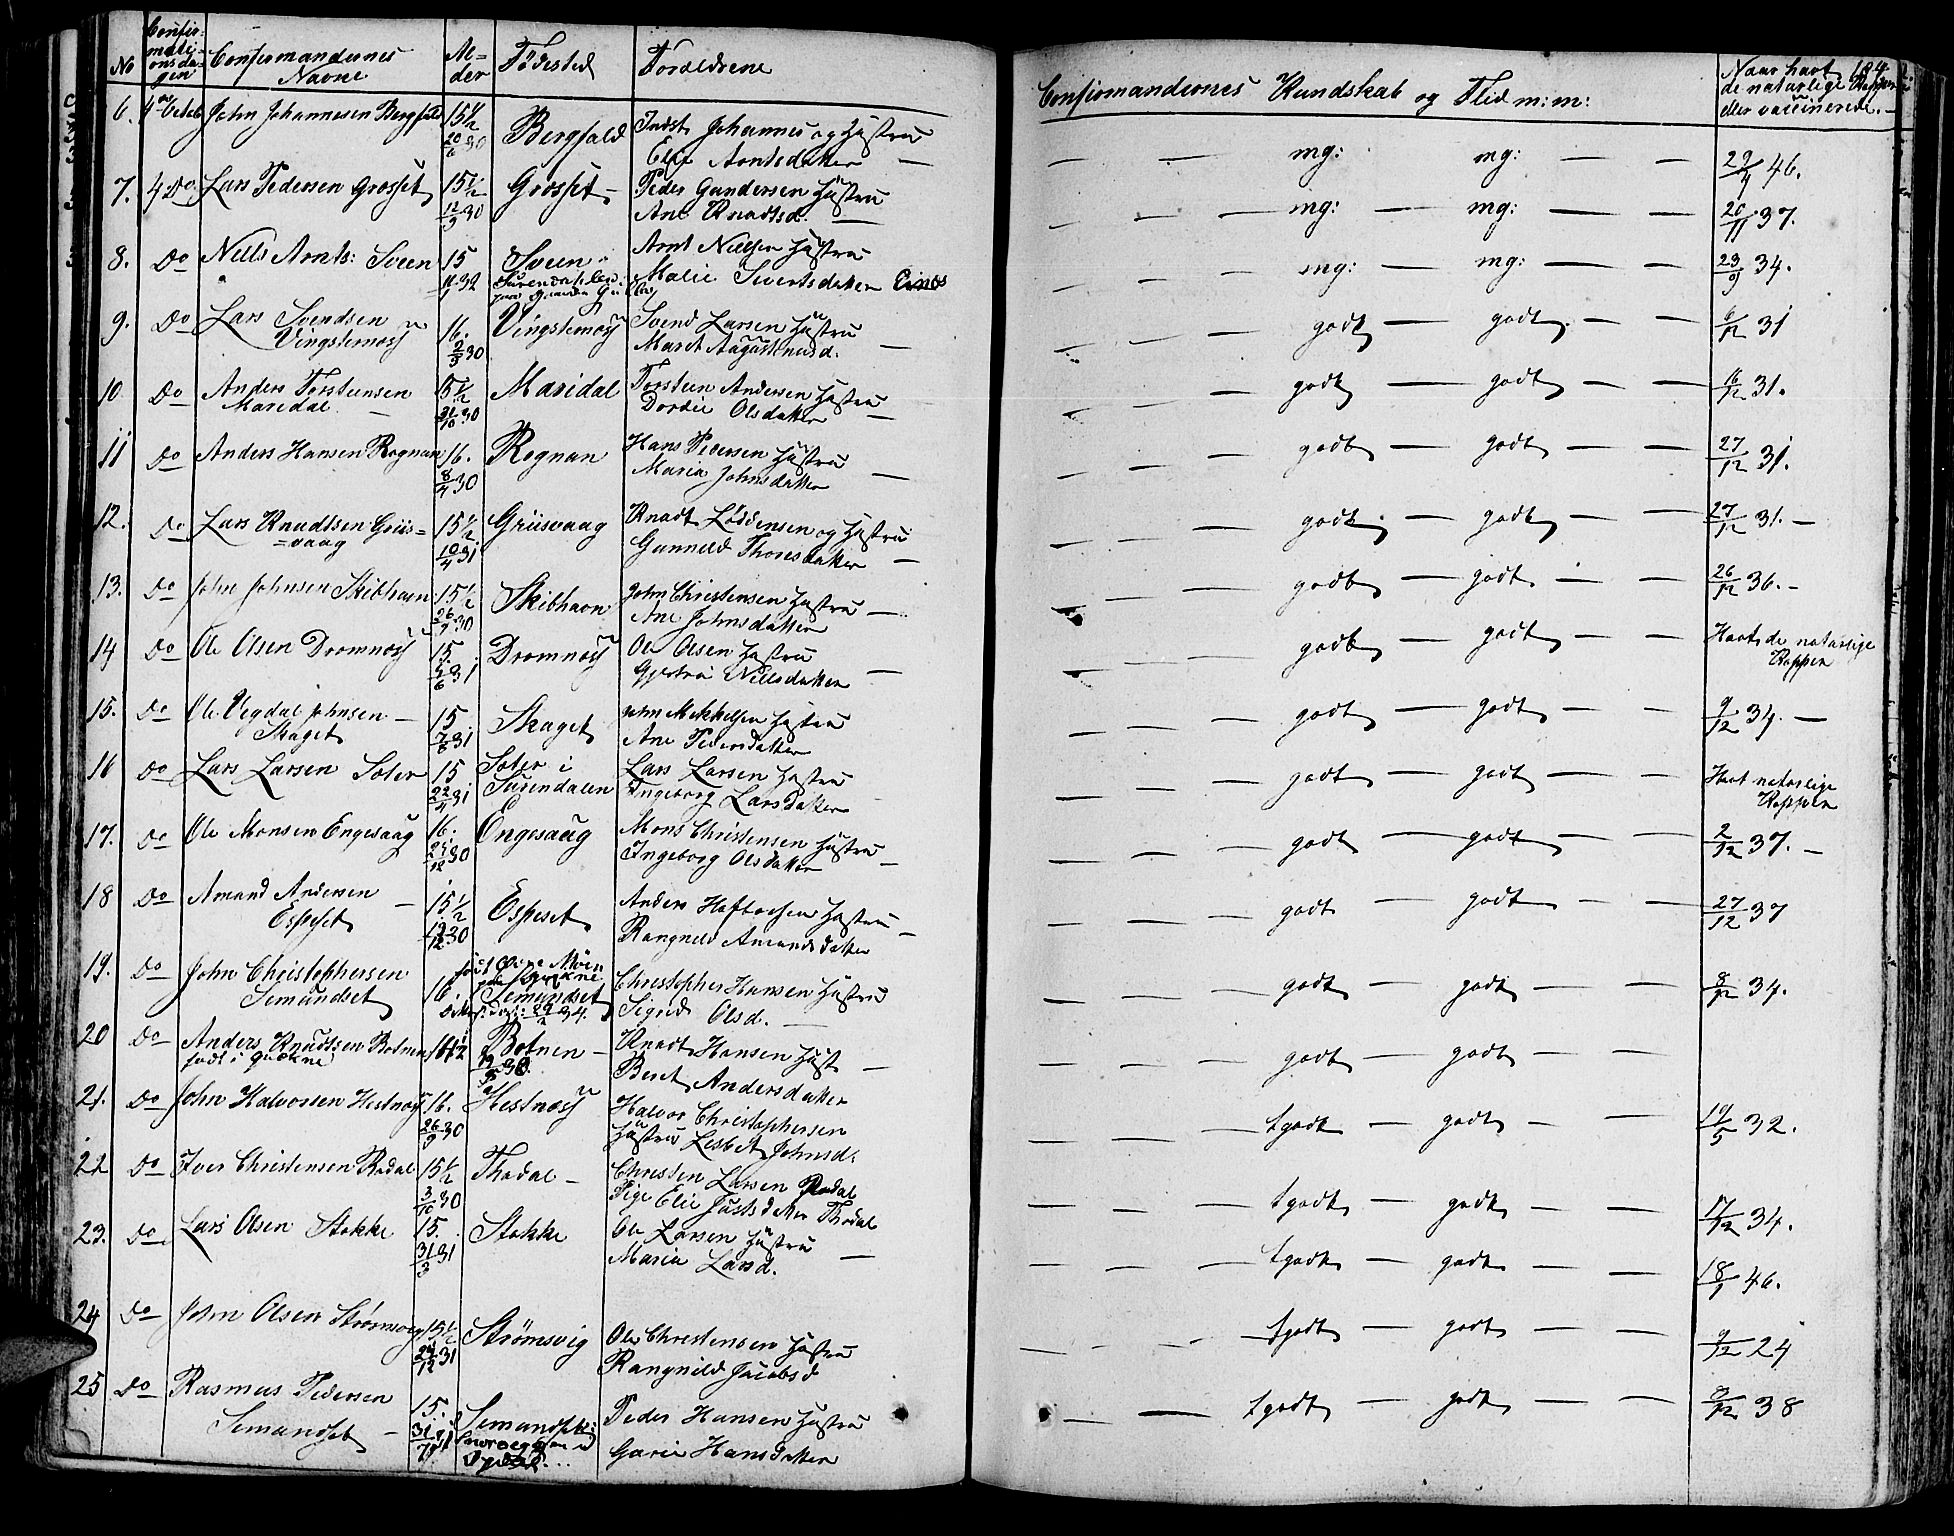 No Confirmationsdagen Confirmandernes Navne Alder Fødested Forældrene
6. 4de Octob John Johannesen Bergfald 15½ 20/6 30 Bergfald Indst Johannes og Hustru
Elie Arntsdatter —
7. 4 Do Lars Pedersen Grosset 15½ 12/3 30 Grosset — Peder Gundersen Hustru
Ane Knudtsd. —
8. Do Nills Arnts: Sveen 15 Sveen Arnt Nillsen Hustru
Malie Sivertsdatter
9. Do Lars Svendsen Vingstemoss 16. Vingstemoss Svend Larsen Hustru
Maret Augustinusd. —
10. Do Anders Torstensen Maridal — 15½ 21/10 30 Maridal Torsten Andersen Hustru
Dordie Olsdatter —
11 Do Anders Hansen Rognan 16. 8/4 30 Rognan Hans Pedersen Hustru
Maria Johnsdatter —
12. Do Lars Knudtsen Griis= 15½ Griisvaag Knudt og Hustru
=vaag 10/4 31 Gunneld Thoresdatter —
13. Do John Johnsen Skibhavn 15½ 26/9 30 Skibhavn John Christensen Hustru —
Ane Johnsdatter
14 Do Ole Olsen Dromness 15. Dromness Ole Olsen Hustru
6 31 Nillsdatter —
15. Do Ole Vegdal Johnsen — 15 Skaget John Mekkelsen Hustru
Skaget 31 Ane Pedersdatter
16 Do Lars Larsen Soter 15 Soter i Lars Larsen Hustru
22/4 31 Surendalen Ingeborg Larsdatter
17. Do Ole Monsen Engesaug 16. Engesaug Mons Christensen Hustru
12 30 Ingeborg Olsdatter —
18 Do Amund Andersen — 15½ Espeset Anders Hustru
Espeset 12 30 Rangnild Amundsdatter —
19. Do John Christophersen 16 Semundset Christopher Hansen Hustru
Semundset Sigrid Olsd. —
20 Do Anders Knudtsen Botnen 16½ Botnen — Knudt Hansen Hust
født i Berit Andersdatter —
21. Do John Halvorsen Hestness 16. Hestness Halvor Christophersen
26/9 30 Hustru Lisbet Johnsd.
22 Do Iver Christensen Rodal 15½ Thodal — Christen Larsen Rodal
3/10 30 Pige Elie Thodal
23. Do Lars Olsen Stokke 15. Stokke Ole Larsen Hustru
31/3 31 Maria Larsd. —
24 Do John Olsen 15½ Strömsvig Ole Christensen Hustru
12 31 Rangnild Jacobsd
25 Do Rasmus Pedersen 15. Peder Hansen Hustru
Semundset — 31 Hansdatter
Confirmandernes Kundskab og Flid m: m: Naar havt de naturlige Kopper eller vaccinerede. —
— — mg: mg: — — 46.
— — mg: — mg: — — 20/11 37.
— — mg: — mg: — — 23/9 34.
— — godt — godt — — 6/12 31
— — godt — godt — — 16/12 31.
— — godt — godt — — 27/12 31.
— — godt — godt — — 27/12 31. —
— — godt — godt — — 26/12 36. —
— — godt — godt — — Havt de naturlige
Kopper
— — godt — godt — — 9/12 34. —
— — godt — godt — — Havt naturlige
Kopper
— — godt — godt — — 2/12 37. —
— — godt — godt — — 27/12 37
— — godt — godt — — 8/12 34.
— — godt — godt — —
— — tgodt — godt — — 19/5 32.
— — tgodt — godt — — 17/12 34.
— — tgodt — godt — — 46.
— — tgodt — godt — — 9/12 24
— — tgodt — godt — — 38